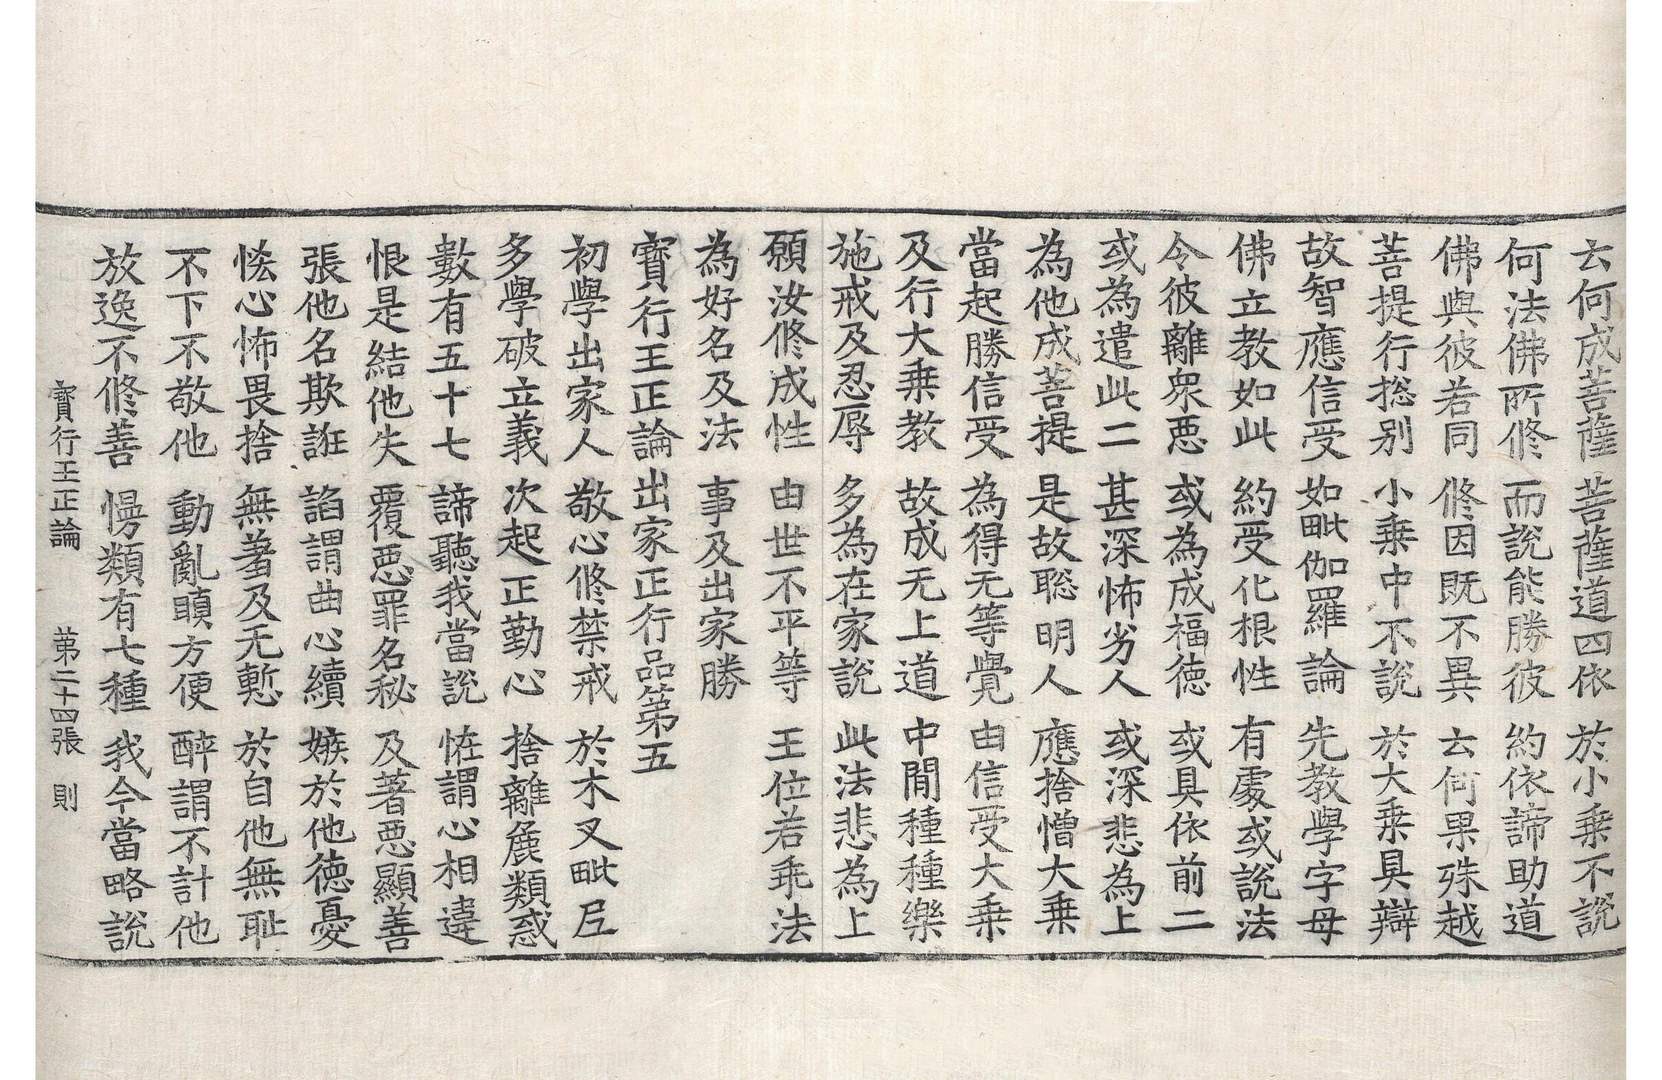 云何成菩薩 菩薩道四依 於小乗不說
何法佛所修 而說能勝彼 約依諦助道
佛與彼若同 修因既不異 云何果殊越
菩提行揔別 小乗中不說 於大乗具辯
故智應信受 如毗伽羅論 先教學字母
佛立教如此 約受化根性 有處或說法
令彼離衆惡 或為成福德 或具依前二
或為遣此二 甚深怖劣人 或深悲為上
為他成菩提 是故聡明人 應捨憎大乗
當起勝信受 為得无等覺 由信受大乗
及行大乗教 故成无上道 中間種種樂
施戒及忍辱 多為在家說 此法悲為上
願汝修成性 由世不平等 王位若乖法
為好名及法 事及出家勝
寳行王正論出家正行品第五
初學出家人 敬心修禁戒 於木叉毗尼
多學破立義 次起正勤心 捨離麁類惑
數有五十七 諦聽我當說 恠謂心相違
恨是結他失 覆惡罪名秘 及著惡顯善
張他名欺誑 諂謂曲心續 嫉於他德憂
恡心怖畏捨 無羞及无慙 於自他無耻
不下不敬他 動亂瞋方便 醉謂不計他
放逸不修善 慢類有七種 我今當略說
寳行王正論 第二十四張 則